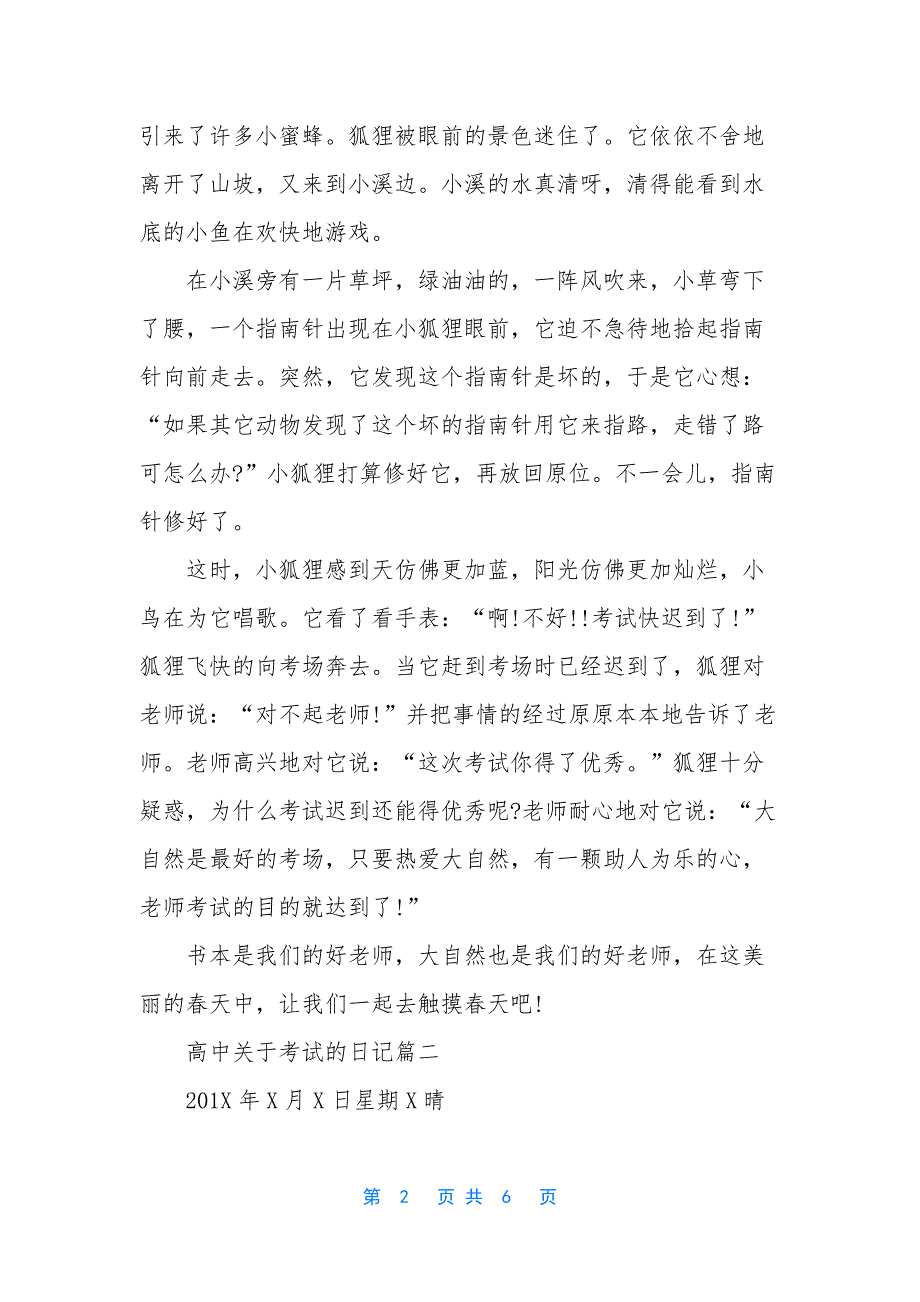 引来了许多小蜜蜂。狐狸被眼前的景色迷住了。它依依不舍地
离开了山坡，又来到小溪边。小溪的水真清呀，清得能看到水
底的小鱼在欢快地游戏。
在小溪旁有一片草坪，绿油油的，一阵风吹来，小草弯下
了腰，一个指南针出现在小狐狸眼前，它迫不急待地拾起指南
针向前走去。突然，它发现这个指南针是坏的，于是它心想：
“如果其它动物发现了这个坏的指南针用它来指路，走错了路
可怎么办?”小狐狸打算修好它，再放回原位。不一会儿，指南
针修好了。
这时，小狐狸感到天仿佛更加蓝，阳光仿佛更加灿烂，小
鸟在为它唱歌。它看了看手表：“啊!不好!!考试快迟到了!”
狐狸飞快的向考场奔去。当它赶到考场时已经迟到了，狐狸对
老师说：“对不起老师!”并把事情的经过原原本本地告诉了老
师。老师高兴地对它说：“这次考试你得了优秀。”狐狸十分
疑惑，为什么考试迟到还能得优秀呢?老师耐心地对它说：“大
自然是最好的考场，只要热爱大自然，有一颗助人为乐的心，
老师考试的目的就达到了!”
书本是我们的好老师，大自然也是我们的好老师，在这美
丽的春天中，让我们一起去触摸春天吧!
高中关于考试的日记篇二
201X 年 X 月 X 日星期 X 晴
第 2 页 共 6 页